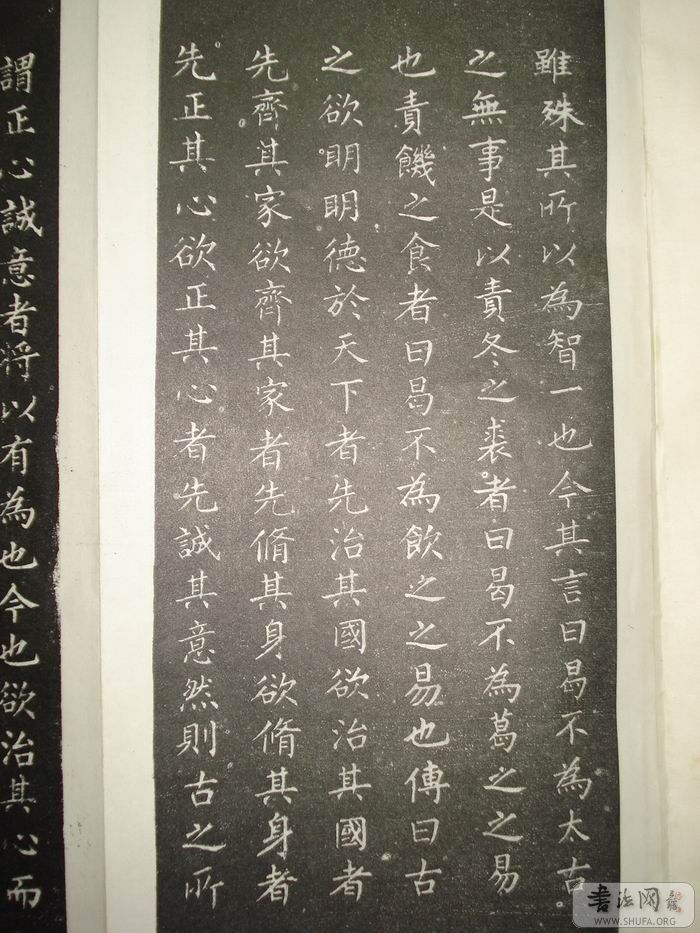 雖殊其所以為智一也今其言曰曷不為太古
之無事是以責冬之裘者曰曷不為葛之之易
也責饑之食者曰曷不為飲之之易也傳曰古
之欲明明德於天下者先治其國欲治其國者
先齊其家欲齊其家者先脩其身欲脩其身者
先正其心欲正其心者先誠其意然則古之所
謂正心誠意者將以有為也今也欲治其心而
書法网
WWW.SHUFA.ORG